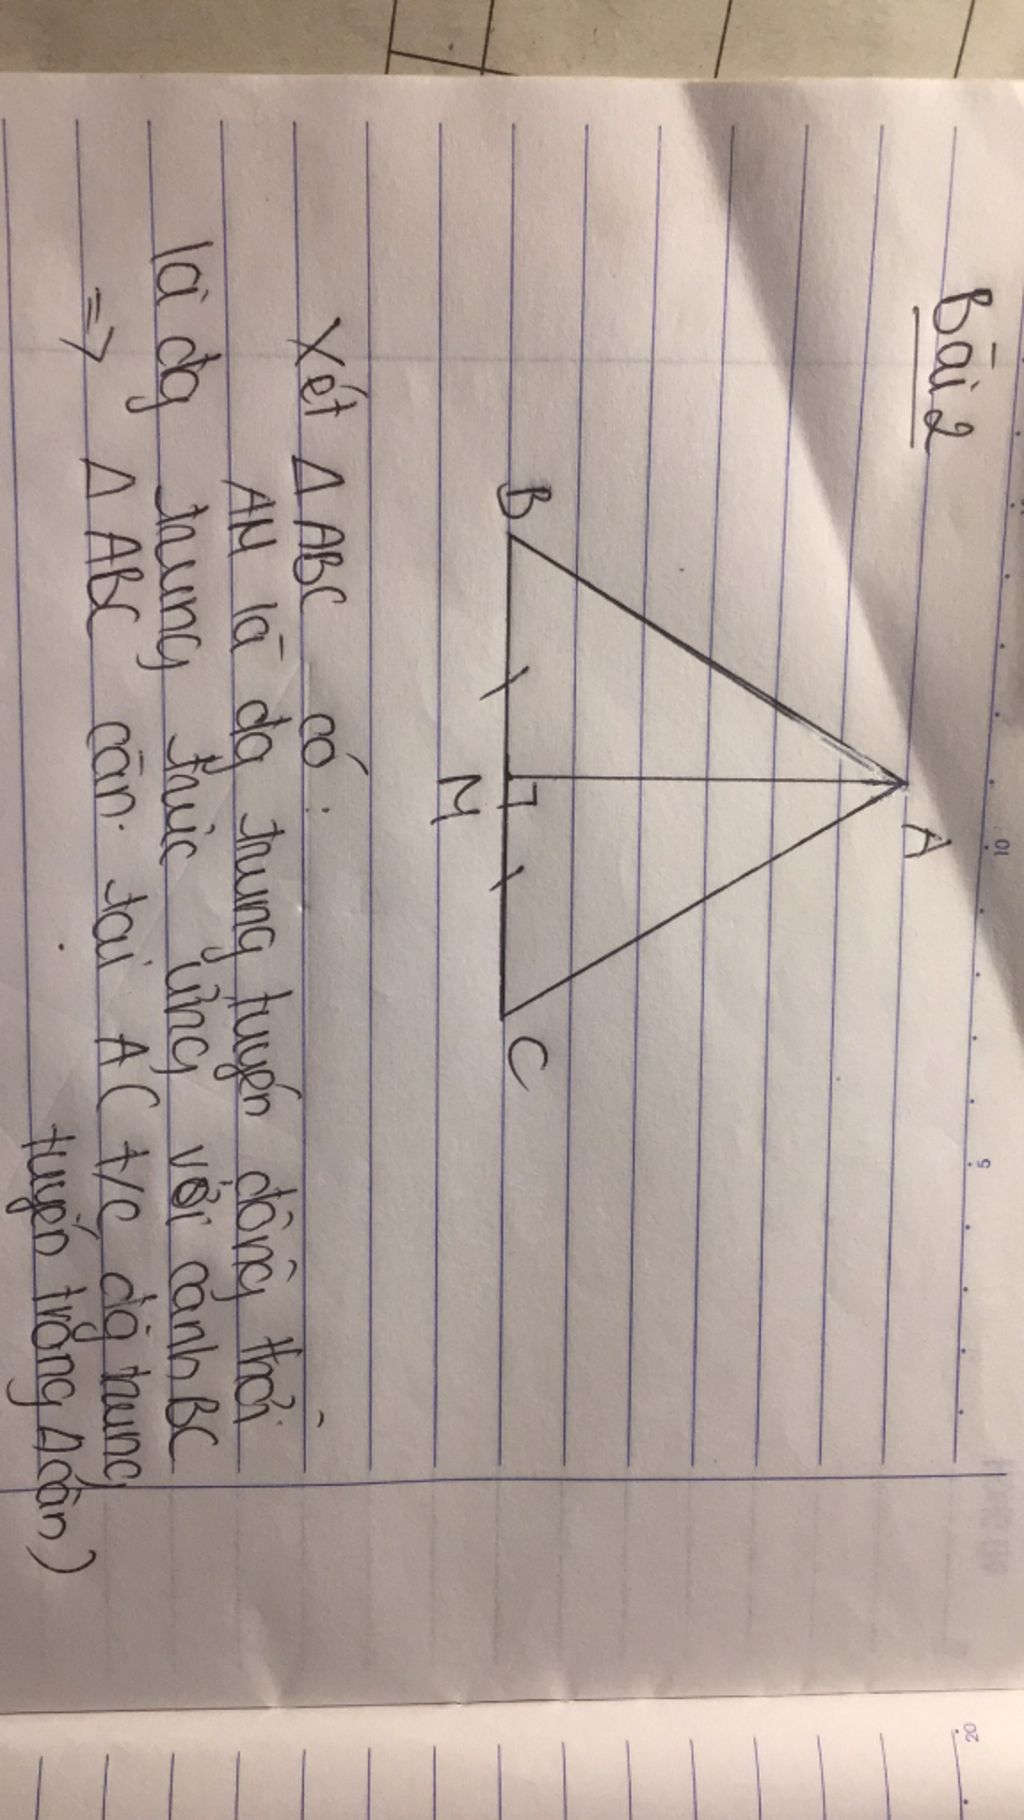 Bài 2
A
B
M
C
Xét Δ ABC có:
AM là đg trung tuyến đồng thời
là đg trung trực ứng với cạnh BC
=> Δ ABC cân tại A ( t/c đg trung
tuyến trong Δ cân)
10
5
20